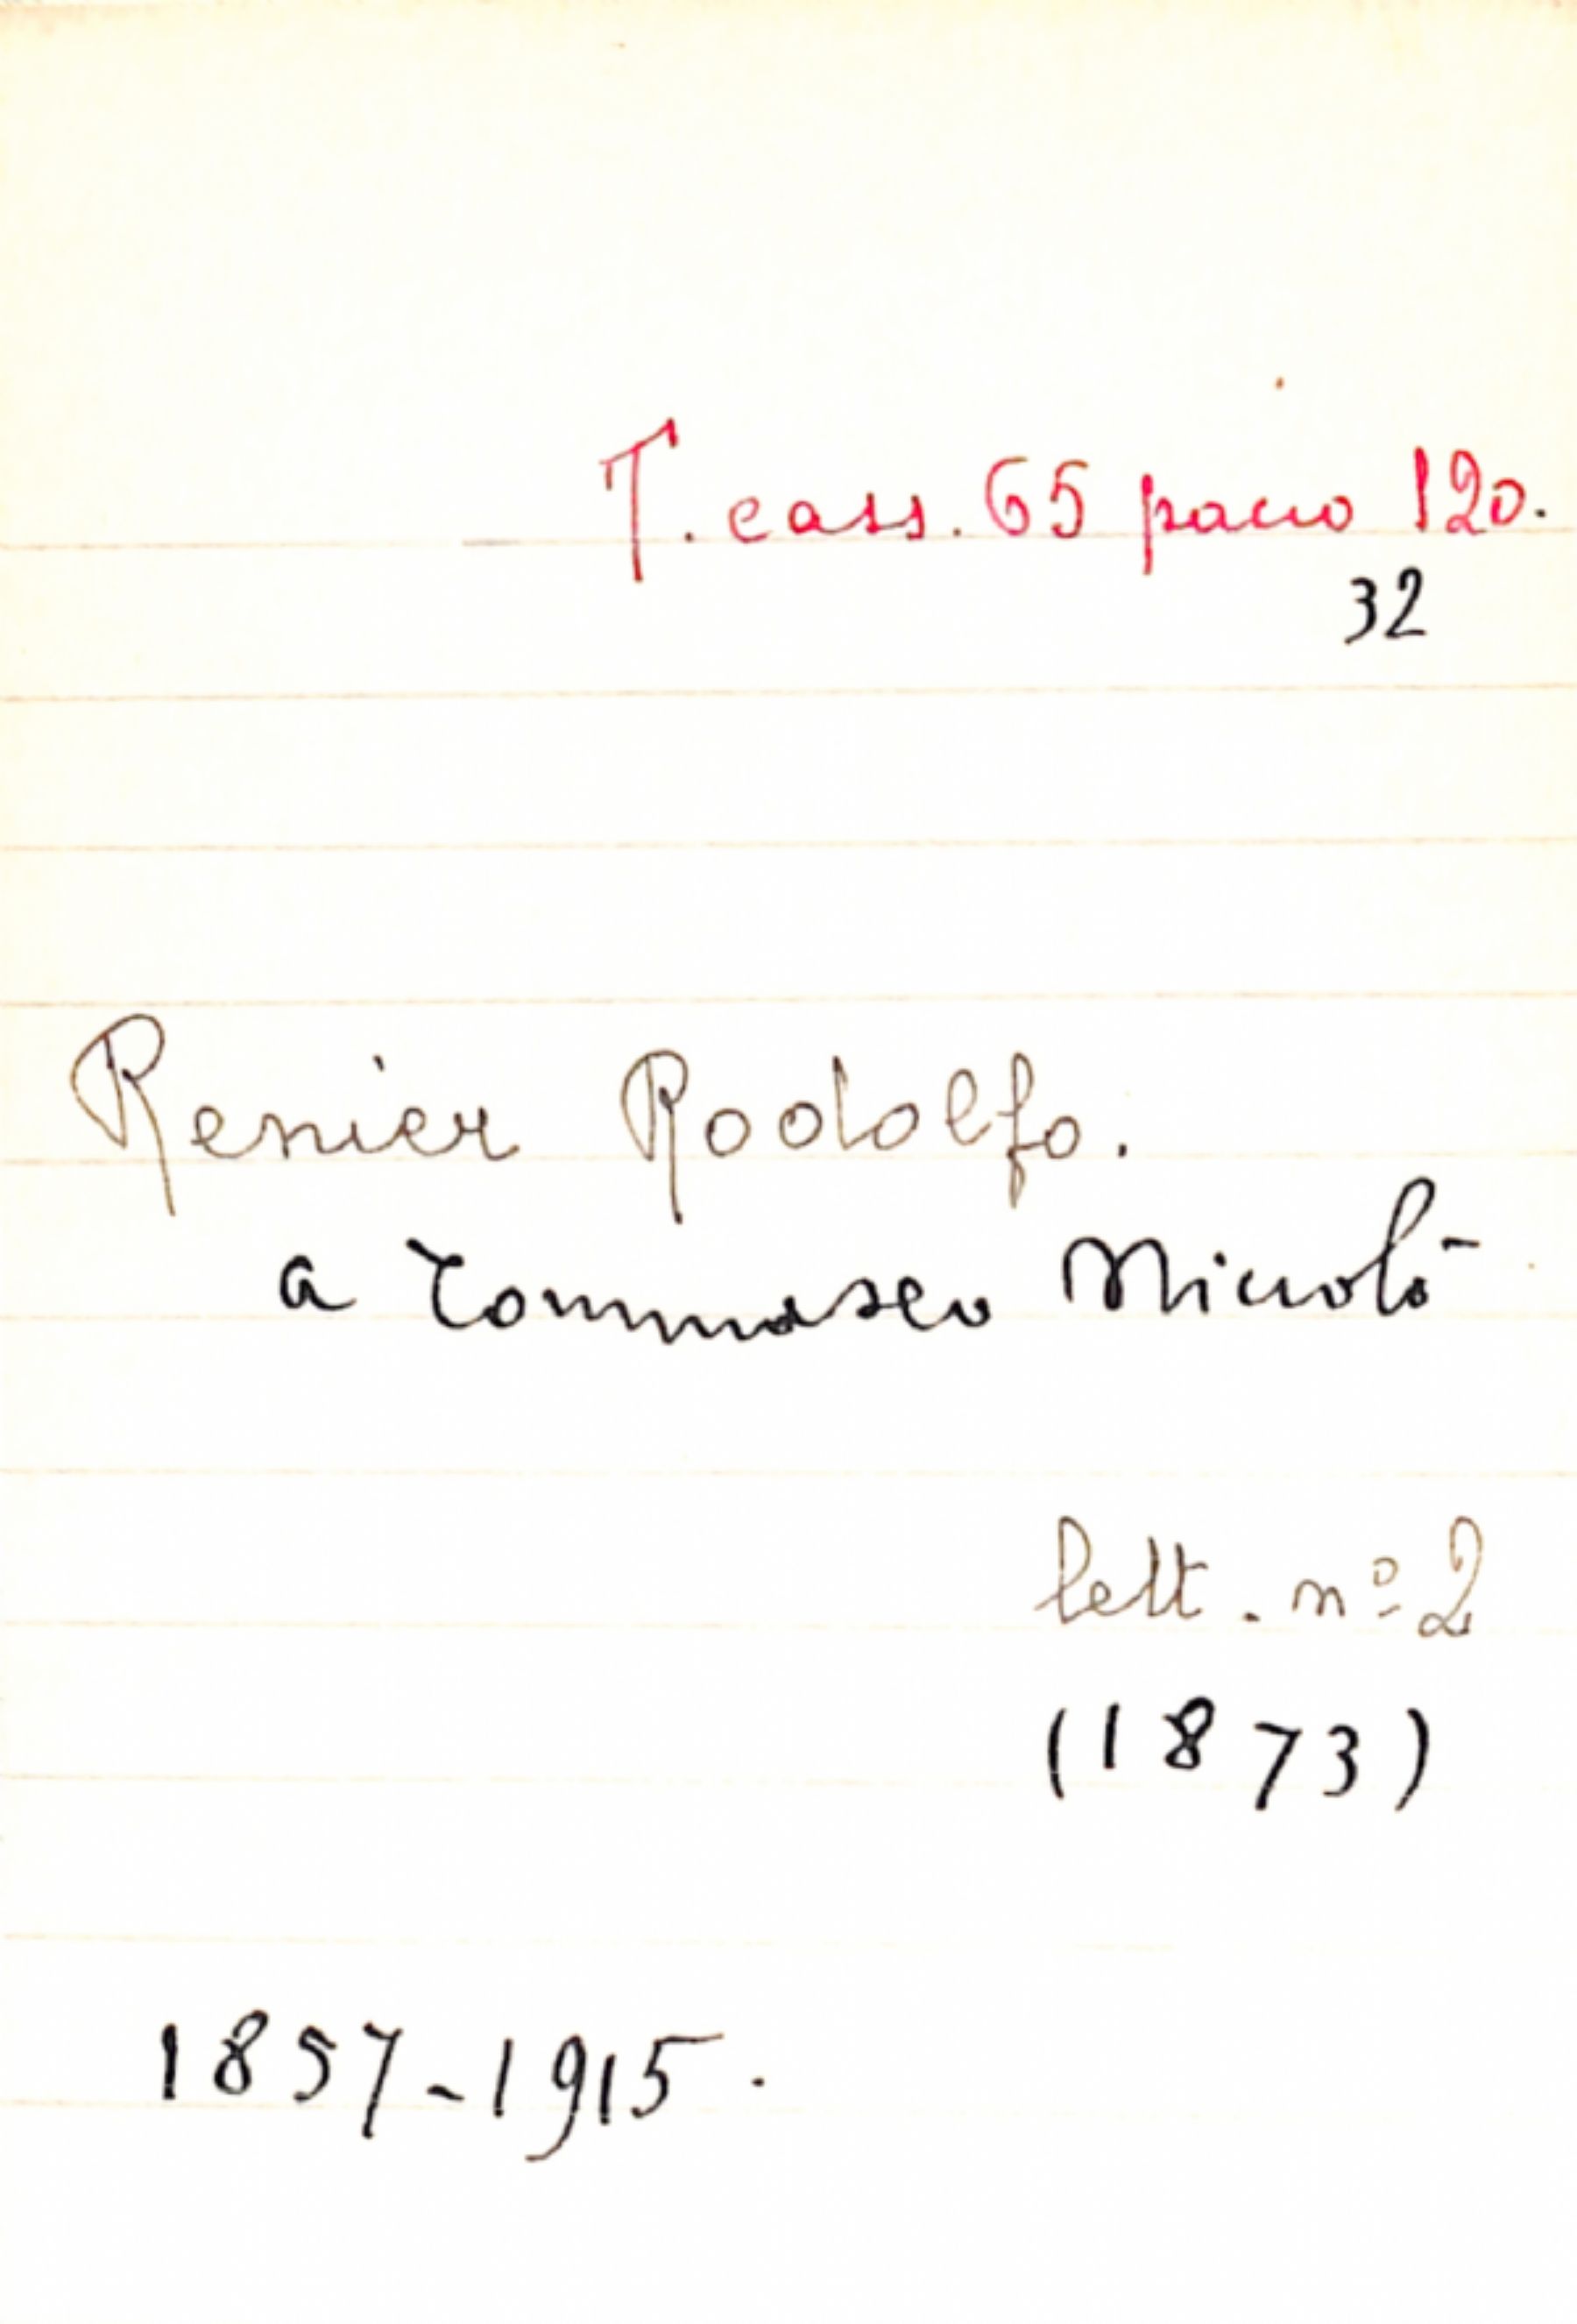 T. cass. 65 pacco 120.
32
Renier Rodolfo.
a Tommaseo Niccolò
lett. nº 2
(1873)
1857-1915.